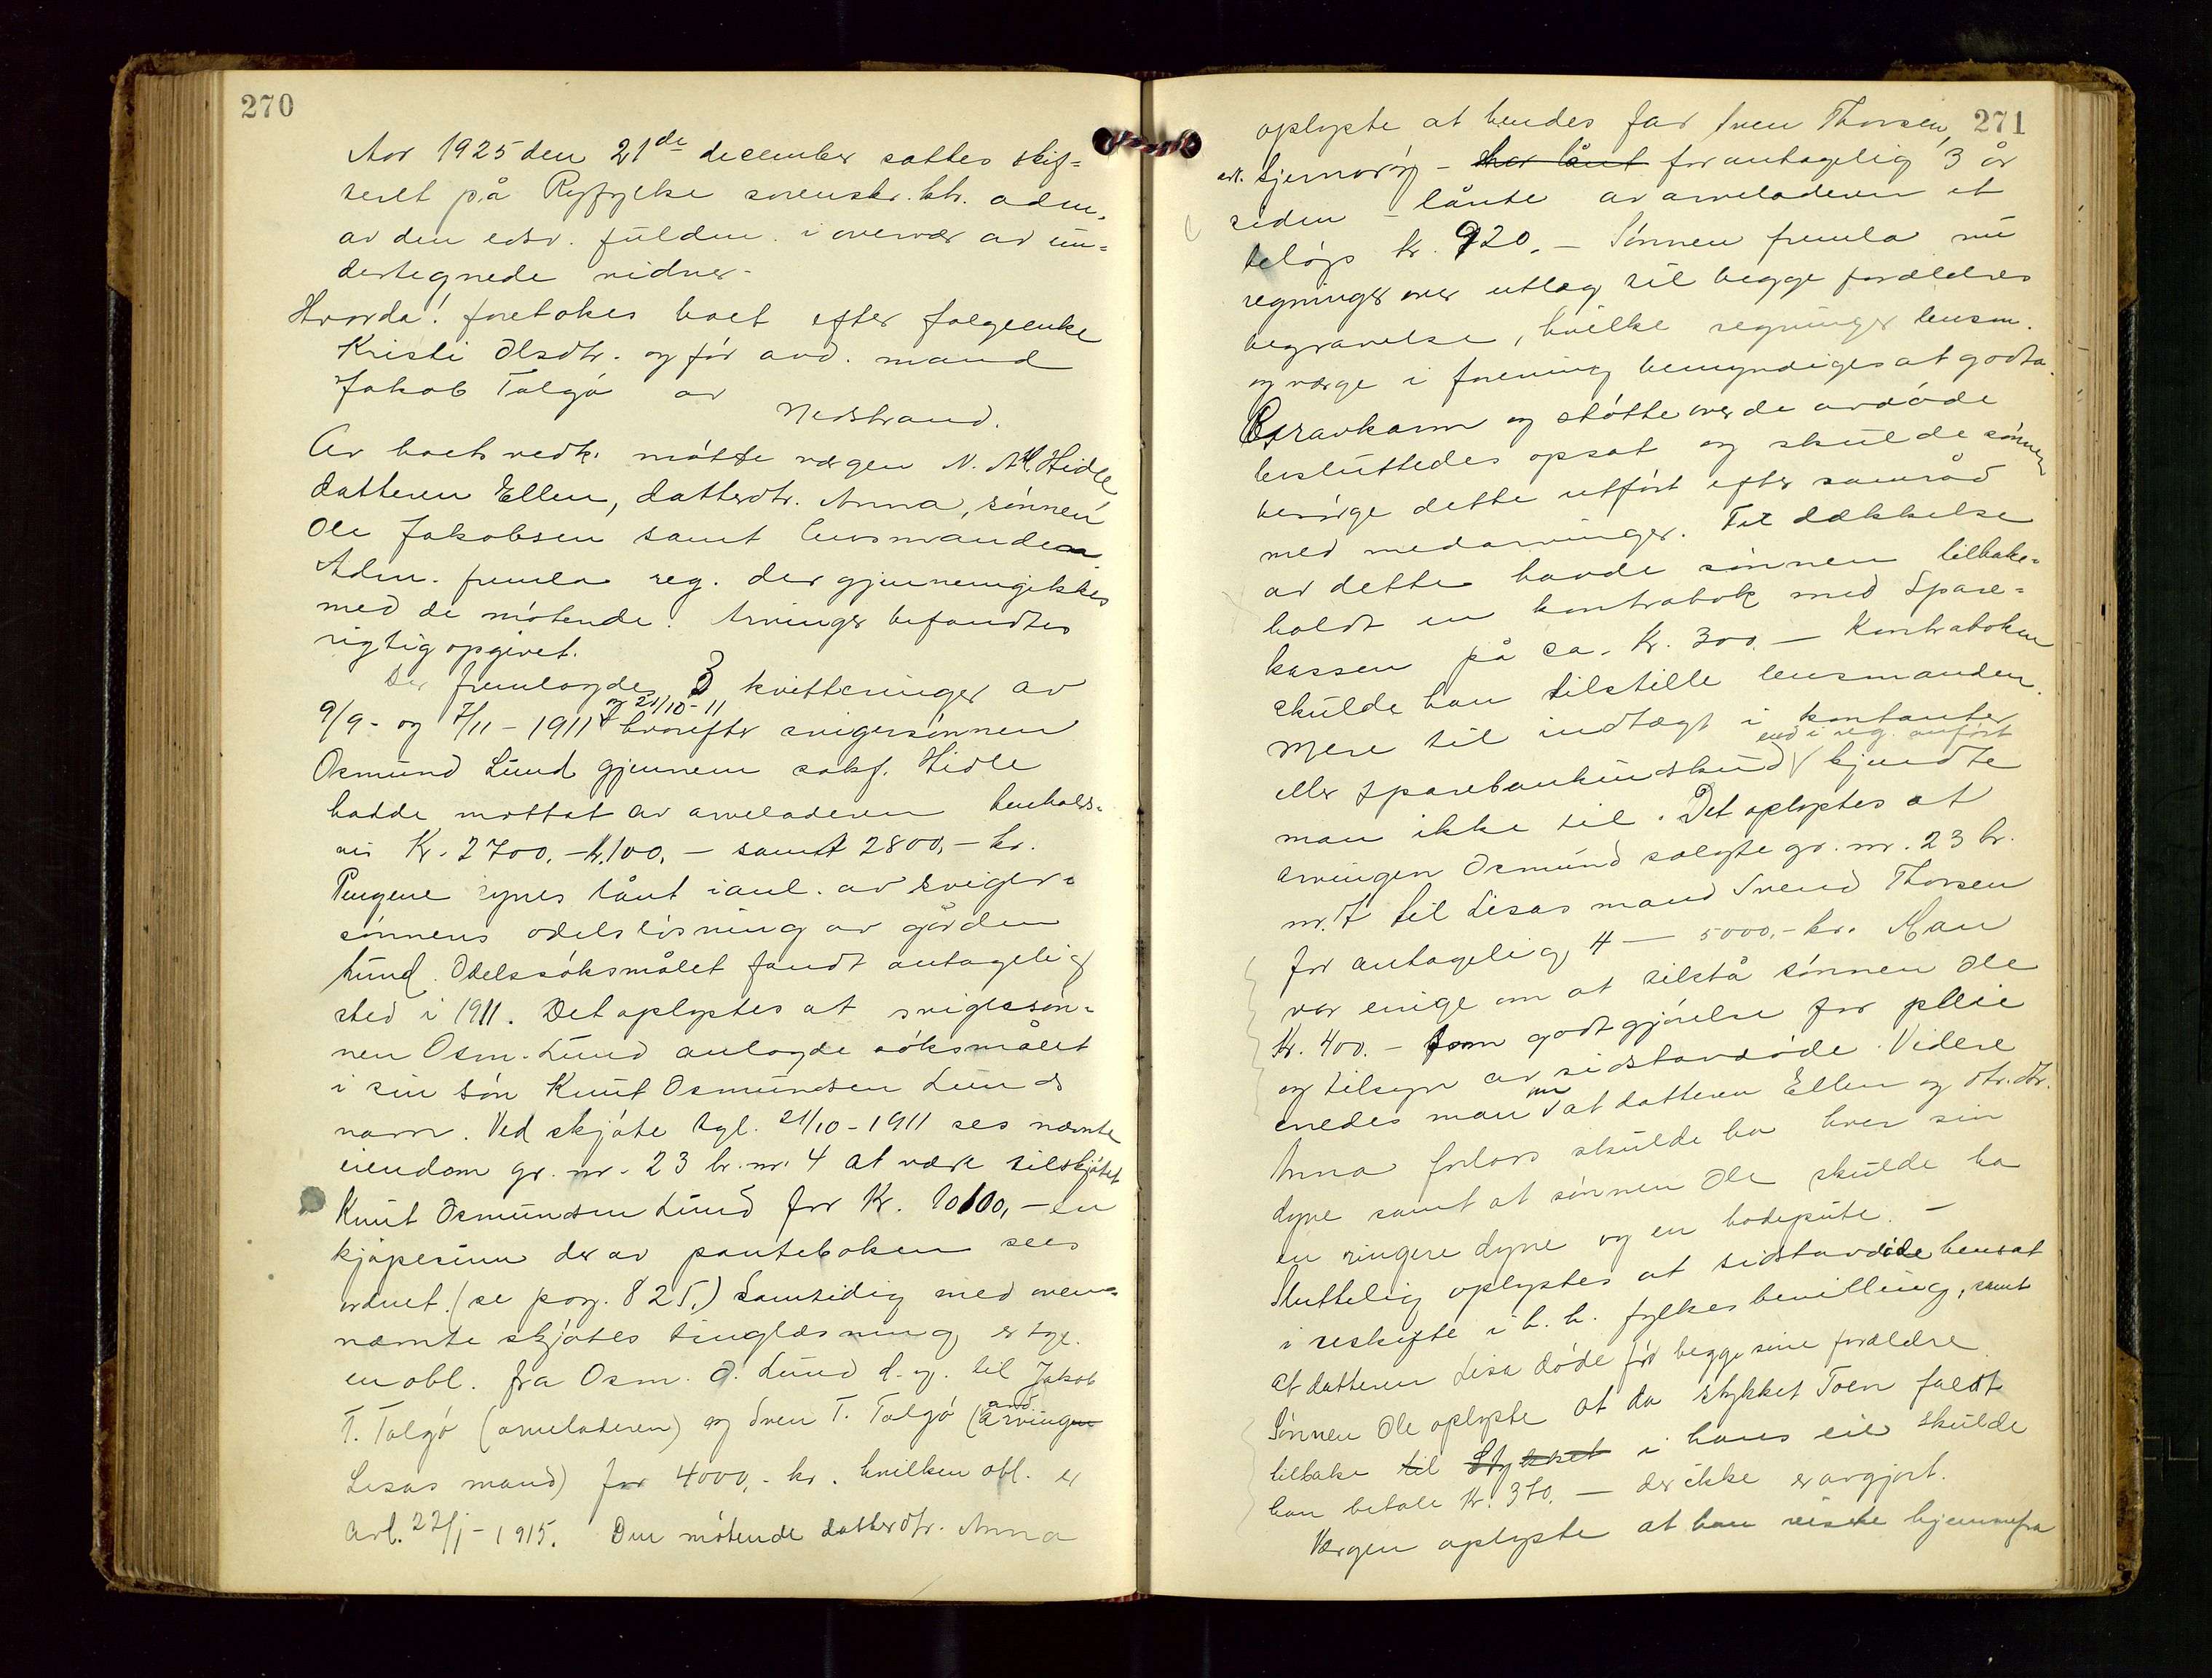 270
Aar 1925 den 21de december sattes skif-
terett på Ryfylke sorenskr. ktr. adm.
av den edsv. fuldm. i overvær av un-
dertegnede vidner.
Hvorda! foretokes boet efter følgeenke
Kristi Olsdtr. og før avd. mand
Jakob Talgø av
Nedstrand.
Av boets vedk. møtte vergen N. M. Hidle,
datteren Ellen, datterdtr. Anna, sønnen
Ole Jakobsen samt lensmanden
Adm. fremla reg. der gjennemgikkes
med de møtende. Arvinger befandtes
rigtig opgivet.
Der fremlagdes 3 kvitteringer av
og 21/10-11
9/9- og 7/11-1911 hvorefter svigersønnen
Osmund Lund gjennem sakf. Hidle
hadde mottat av arveladeren henholds-
vis Kr. 2700,- kr. 100,- samt 2800,- kr.
Pengene synes lånt ianl. av sviger-
sønnens odelsløsning av gården
Lund. Odelssøksmålet fandt antagelig
sted i 1911. Det oplystes at svigersøn-
nen Osm. Lund anlagde søksmålet
i sin søn Knut Osmundsen Lunds
navn. Ved skjøte tgl. 21/10-1911 ses nævnte
eiendom gr. nr. 23 br. nr. 4 at være tilskjøtet
Knut Osmundsen Lund for Kr. 10100,- en
kjøpesum der av panteboken sees
ordnet. (se pag. 825.) Samtidig med oven-
nævnte skjøtes tinglæsning er tgl.
en obl. fra Osm. O. Lund d. og. til Jakob
T. Talgø (arveladeren) og Sven T. Talgø (arvingen
avd.
Lisas mand) for 4000,- kr. hvilken obl. er
avl. 22/1-1915. Den møtende datterdtr. Anna
271
oplyste at hendes far Sven Thorsen,
adr. Hjernarøy - har lånt for antagelig 3 år
siden - lånte av arveladeren et
beløp kr. 920,- Sønnen fremla nu
regninger over utlæg til begge forældres
begravelse, hvilke regninger lensm.
og verge i forening bemyndiges at godta.
Gravkarm og støtte over de avdøde
besluttedes opsat og skulde sønnen
besørge dette utført efter samråd
med medarvinger. Til dækkelse
av dette havde sønnen tilbake-
holdt en kontrabok med Spare-
kassen på ca. kr. 300,- Kontraboken
skulde han tilstille lensmanden.
Mere til indtægt i kontanter
end i reg. anført
eller sparebankindskud kjendte
man ikke til. Det oplystes at
arvingen Osmund solgte gr. nr. 23 br.
nr. 7 til Lisas mand Svend Thorsen
for antagelig 4 - 5000,- kr. Man
var enige om at tilstå sønnen Ole
kr. 400.- som godtgjørelse for pleie
og tilsyn av sidstavdøde. Videre
enedes man om at datteren Ellen og dtr.dtr.
Anna forlods skulde ha hver sin
dyne samt at sønnen Ole skulde ha
en ringere dyne og en hodepute. -
Sluttelig oplystes at sidstavdøde hensat
i uskifte i h. h. fylkes bevilling, samt
at datteren Lisa døde før begge sine forældre.
Sønnen Ole oplyste at da stykket Toen faldt
tilbake til Stykket i hans eie skulde
han betale Kr. 370.- der ikke er avgjort.
Vergen oplyste at han reiste hjemmefra